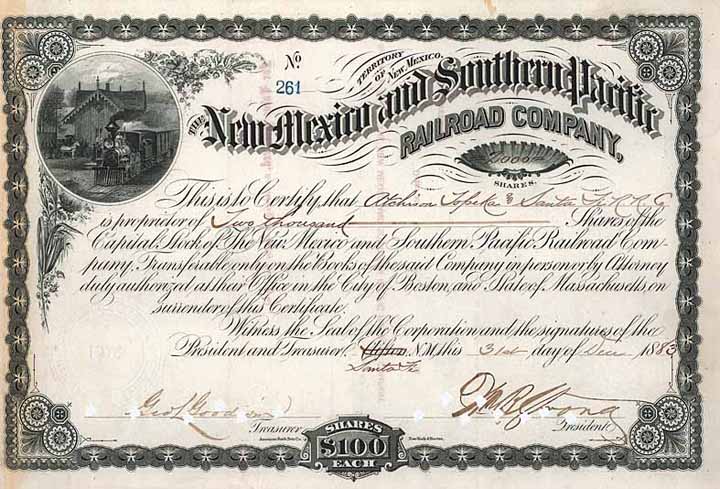 No
261
TERRITORY
OF NEW MEXICO.
THE New Mexico and Southern Pacific
RAILROAD COMPANY,
2000
SHARES.
This is to Certify that Atchison Topeka & Santa Fe R. R. Co
is proprietor of Two thousand Shares of the
Capital Stock of The New Mexico and Southern Pacific Railroad Com-
pany, Transferable only on the Books of the said Company in person or by Attorney
duly authorized at their Office in the City of Boston, and State of Massachusetts on
surrender of this Certificate.
Witness the Seal of the Corporation and the signatures of the
President and Treasurer. Clifton N.M. this 31st day of Dec 1883
Santa Fe
Geo L Goodwin Wm B. Strong
Treasurer President
American Bank Note Co. New York & Boston.
SHARES
$100
EACH